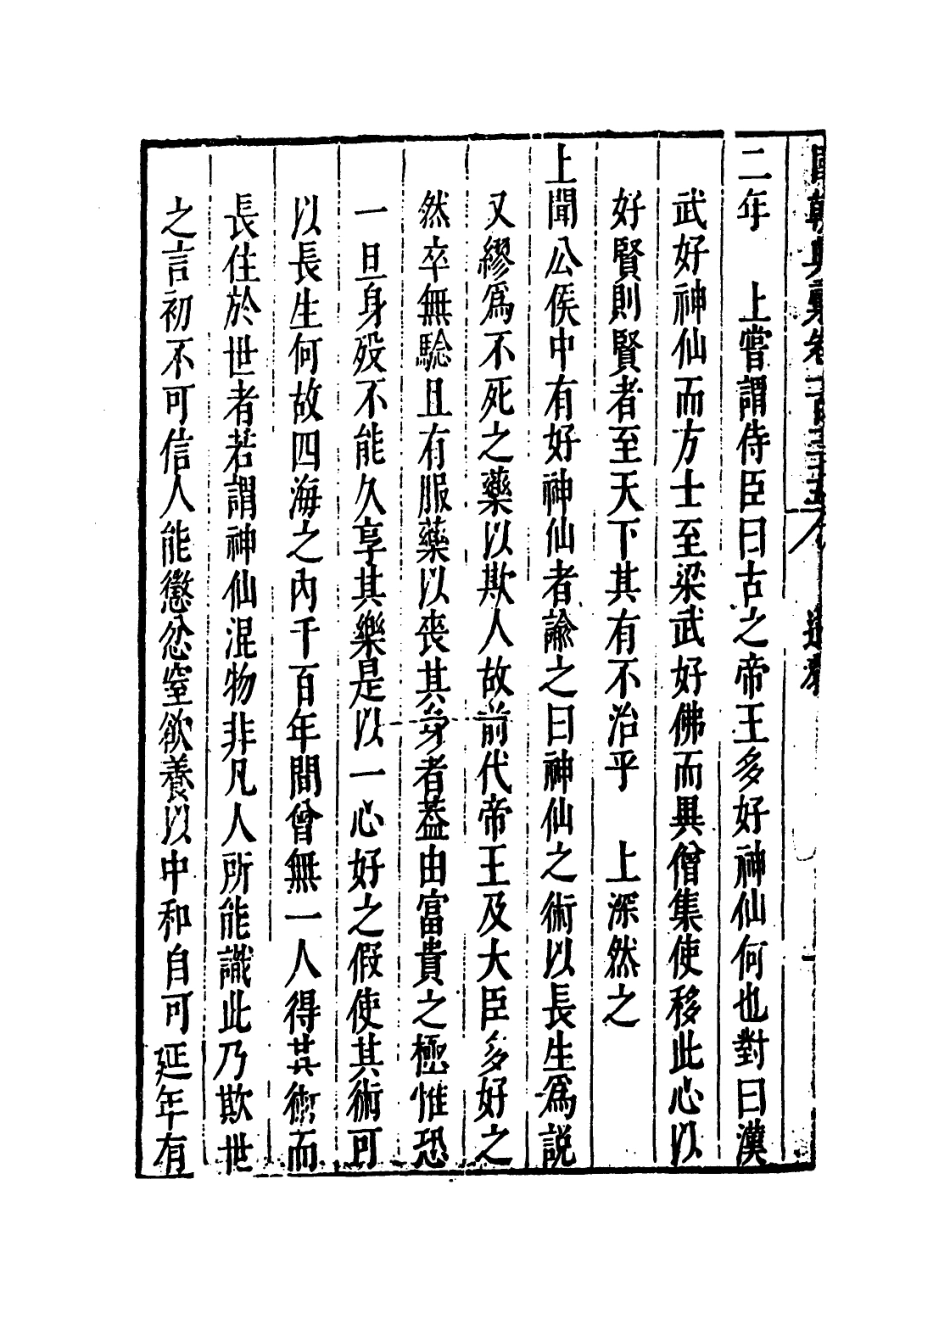 二年　上嘗謂侍臣曰古之帝王多好神仙何也對曰漢
武好神仙而方士至梁武好佛而異僧集使移此心以
好賢則賢者至天下其有不治乎　上深然之
上聞公侯中有好神仙者諭之曰神仙之術以長生爲說
又繆爲不死之藥以欺人故前代帝王及大臣多好之
然卒無驗且有服藥以喪其身者葢由富貴之極惟恐
一旦身殁不能久享其樂是以一心好之假使其術可
以長生何故四海之內千百年間曾無一人得其術而
長住於世者若謂神仙混物非凡人所能識此乃欺世
之言初不可信人能懲忿窒欲養以中和自可延年有